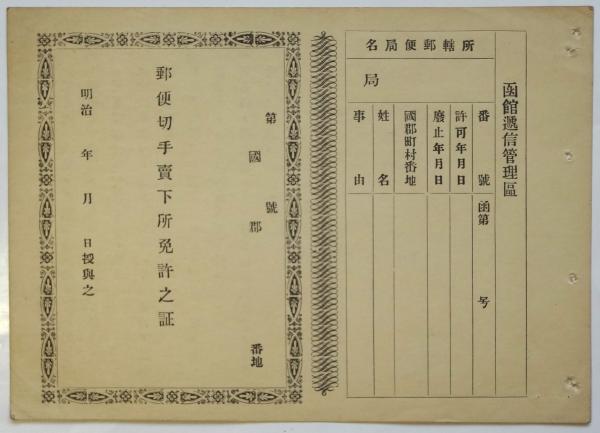 函館遞信管理區
所轄郵便局名
局
番號 函第 号
許可年月日
廢止年月日
國郡町村番地
姓名
事由
第 號
國 郡 番地
郵便切手賣下所免許之証
明治 年 月 日授與之